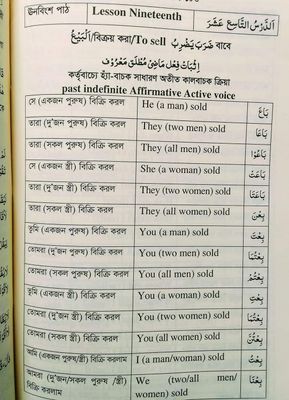 ঊনবিংশ পাঠ Lesson Nineteenth اَلدَّرْسُ التَّاسِعَ عَشَرَ
اَلْبَيْعُ/বিক্রয় করা/To sell ضَرَبَ يَضْرِبُ বাবে
اِثْبَات فِعْل مَاضِىْ مُطْلَق مَعْرُوْف
কর্তৃবাচ্যে হ্যাঁ-বাচক সাধারণ অতীত কালবাচক ক্রিয়া
past indefinite Affirmative Active voice
সে (একজন পুরুষ) বিক্রি করল He (a man) sold بَاعَ
তারা (দু'জন পুরুষ) বিক্রি করল They (two men) sold بَاعَا
তারা (সকল পুরুষ) বিক্রি করল They (all men) sold بَاعُوْا
সে (একজন স্ত্রী) বিক্রি করল She (a woman) sold بَاعَتْ
তারা (দু'জন স্ত্রী) বিক্রি করল They (two women) sold بَاعَتَا
তারা (সকল স্ত্রী) বিক্রি করল They (all women) sold بِعْنَ
তুমি (একজন পুরুষ) বিক্রি করল You (a man) sold بِعْتَ
তোমরা (দু'জন পুরুষ) বিক্রি করল You (two men) sold بِعْتُمَا
তোমরা (সকল পুরুষ) বিক্রি করল You (all men) sold بِعْتُمْ
তুমি (একজন স্ত্রী) বিক্রি করল You (a woman) sold بِعْتِ
তোমরা (দু'জন স্ত্রী) বিক্রি করল You (two women) sold بِعْتُمَا
তোমরা (সকল স্ত্রী) বিক্রি করল You (all women) sold بِعْتُنَّ
আমি (একজন পুরুষ/স্ত্রী) বিক্রি করলাম I (a man/woman) sold بِعْتُ
আমরা (দু'জন/সকল পুরুষ /স্ত্রী) বিক্রি করলাম We (two/all men/ women) sold بِعْنَا